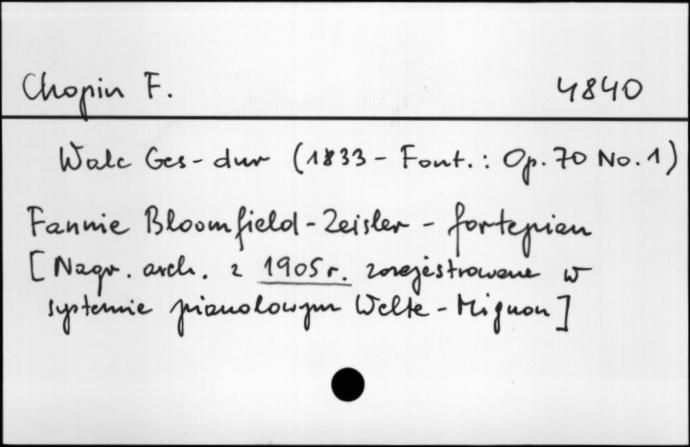 Chopin F. 4840
Walc Ges-dur (1833 - Font.: Op. 70 No. 1)
Fannie Bloomfield-Zeisler - fortepian
[Nagr. arch. z 1905 r. zarejestrowane w
systemie pianolowym Welte-Mignon]